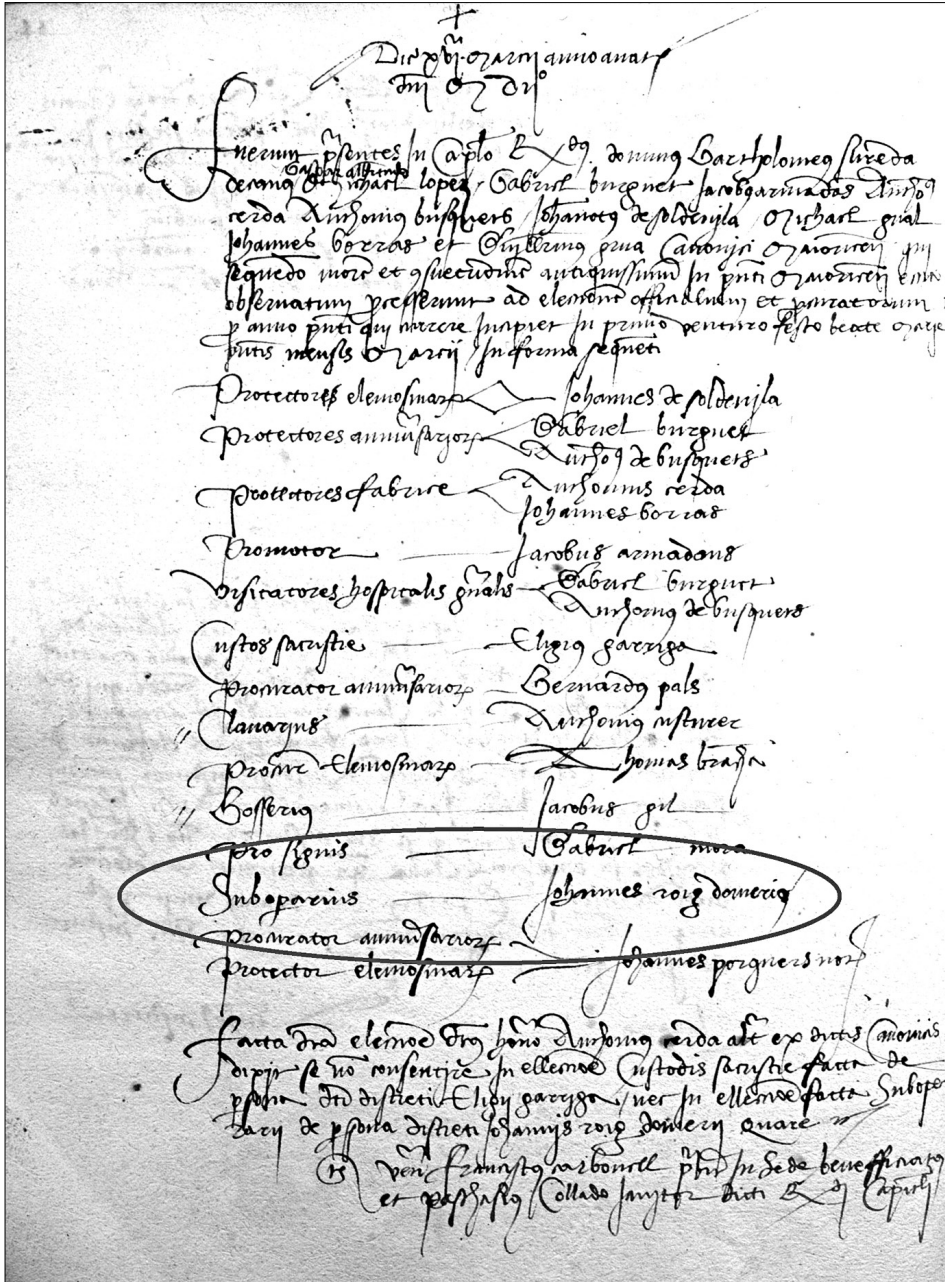 Die xvi Marcii anno a nate
dni M D vii°
Fuerunt presentes In Caplo Rdus dominus Bartholomeus Sureda
decanus Michael lopez Gabriel burguet Jacobus armadans Anthos
cerda Anthonius busquets Johanotus de soldevila Michael gual
Johannes borras et Canonici Maioricen
sequendo more et antiquissimum In pnti Maioricen
observatum pcesserunt ad electione officialium et pcuratorum
p anno pnti qui currere Incipiet In primo venturo festo beate Marie
pntis mensis Marcii In forma sequeti
Protectores elemosinar Johannes de soldevila
Protectores anniversarior Gabriel burguet
Anthos de busquets
Protectores fabrice Anthonius cerda
Johannes borras
Promotor Jacobus armadans
Visitatores hospitalis gnalis Gabriel burguet
Anthonius de busquets
Custos sacristie Eligius garriga
Procurator anniversarior Bernardus pals
// Clavarius Anthonius custurer
Procur Elemosinar Thomas
// Bosserius Jacobus gil
Pro signis Gabriel mora
Suboparius Johannes roig domerius
Procurator anniversarior
Protector elemosinar Johannes porquers not
Facta dicta electione dictus Anthonius cerda alt ex dictis Canonicis
dixit se no consentire In ellectioe Custodis sacristie facta de
psona dicti discreti Eligii garriga nec In ellectioe facta Subope
rarii de psona discreti Johannis roig domerii quare
ts ven Franciscus carbonell pbr In Sede beneficiatus
et paschasius Collado Janitor dicti Rdi Capituli